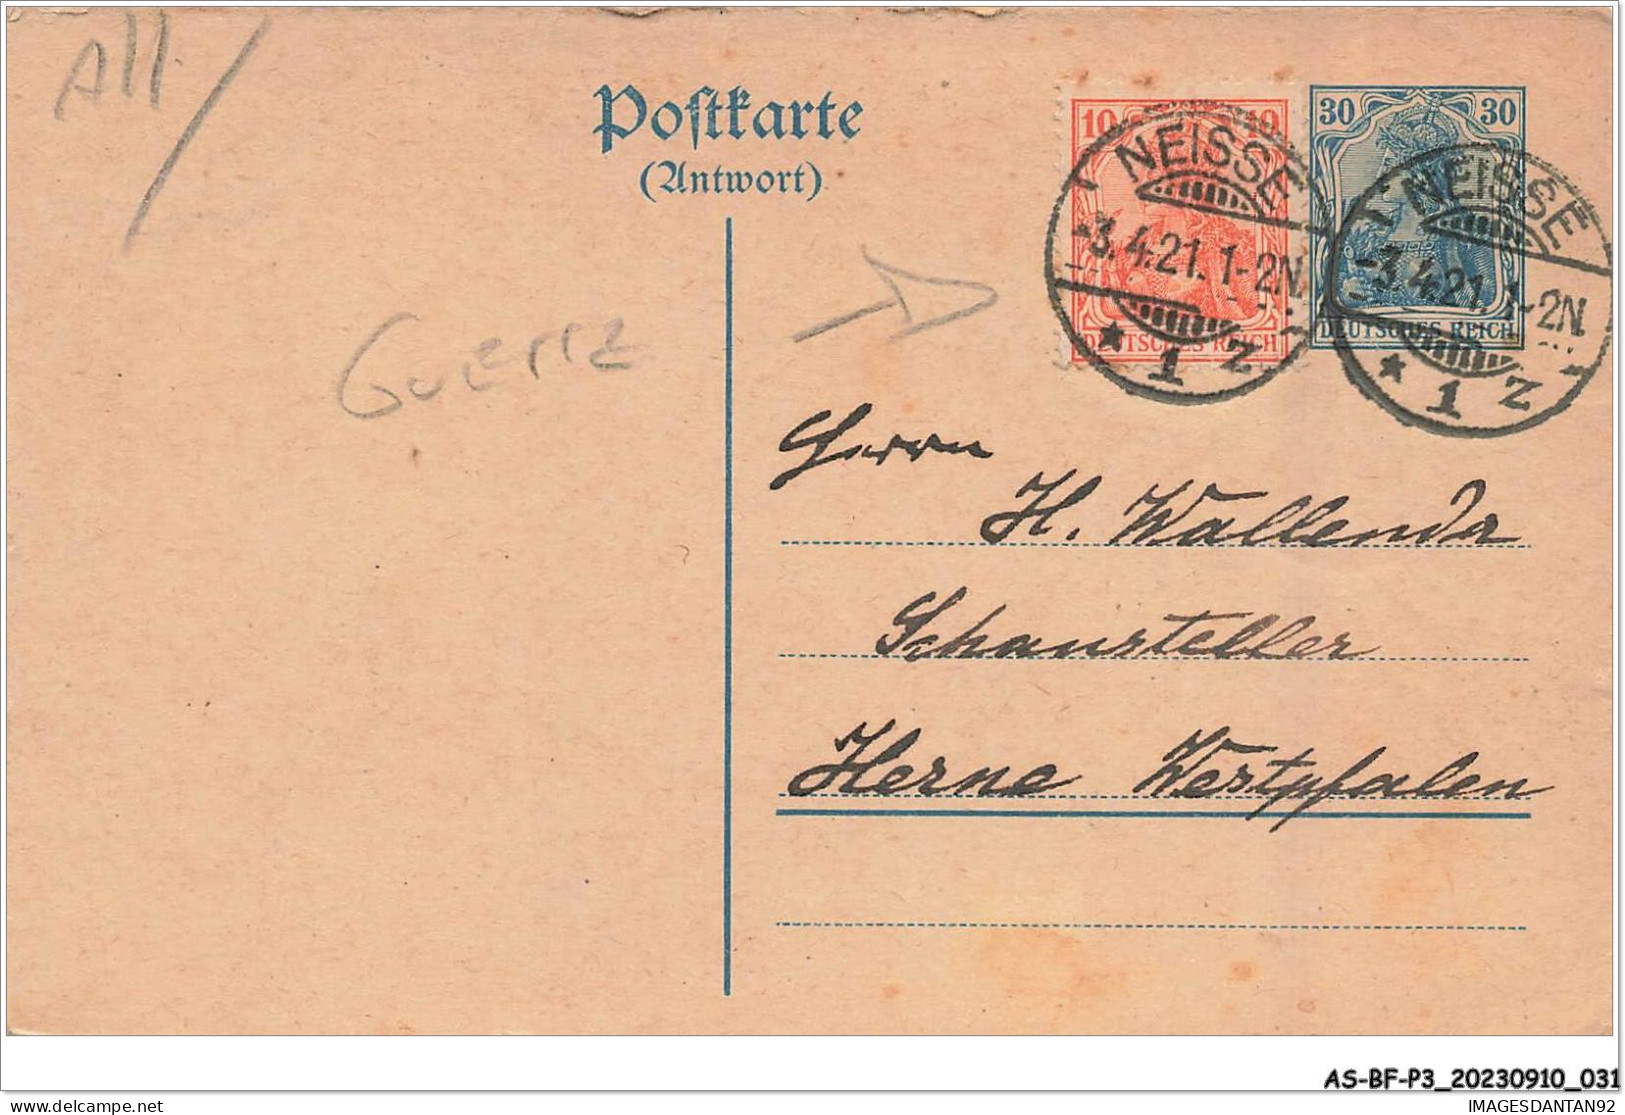 All
Postkarte
(Antwort)
10 10
DEUTSCHES REICH
30 30
DEUTSCHES REICH
NEISSE
-3.4.21. 1-2N.
* 1 z
NEISSE
-3.4.21. 1-2N.
* 1 z
Guerre
Herrn
H. Wallenda
Schausteller
Herne Westpfalen
AS-BF-P3_20230910_031
delcampe.net
IMAGESDANTAN92